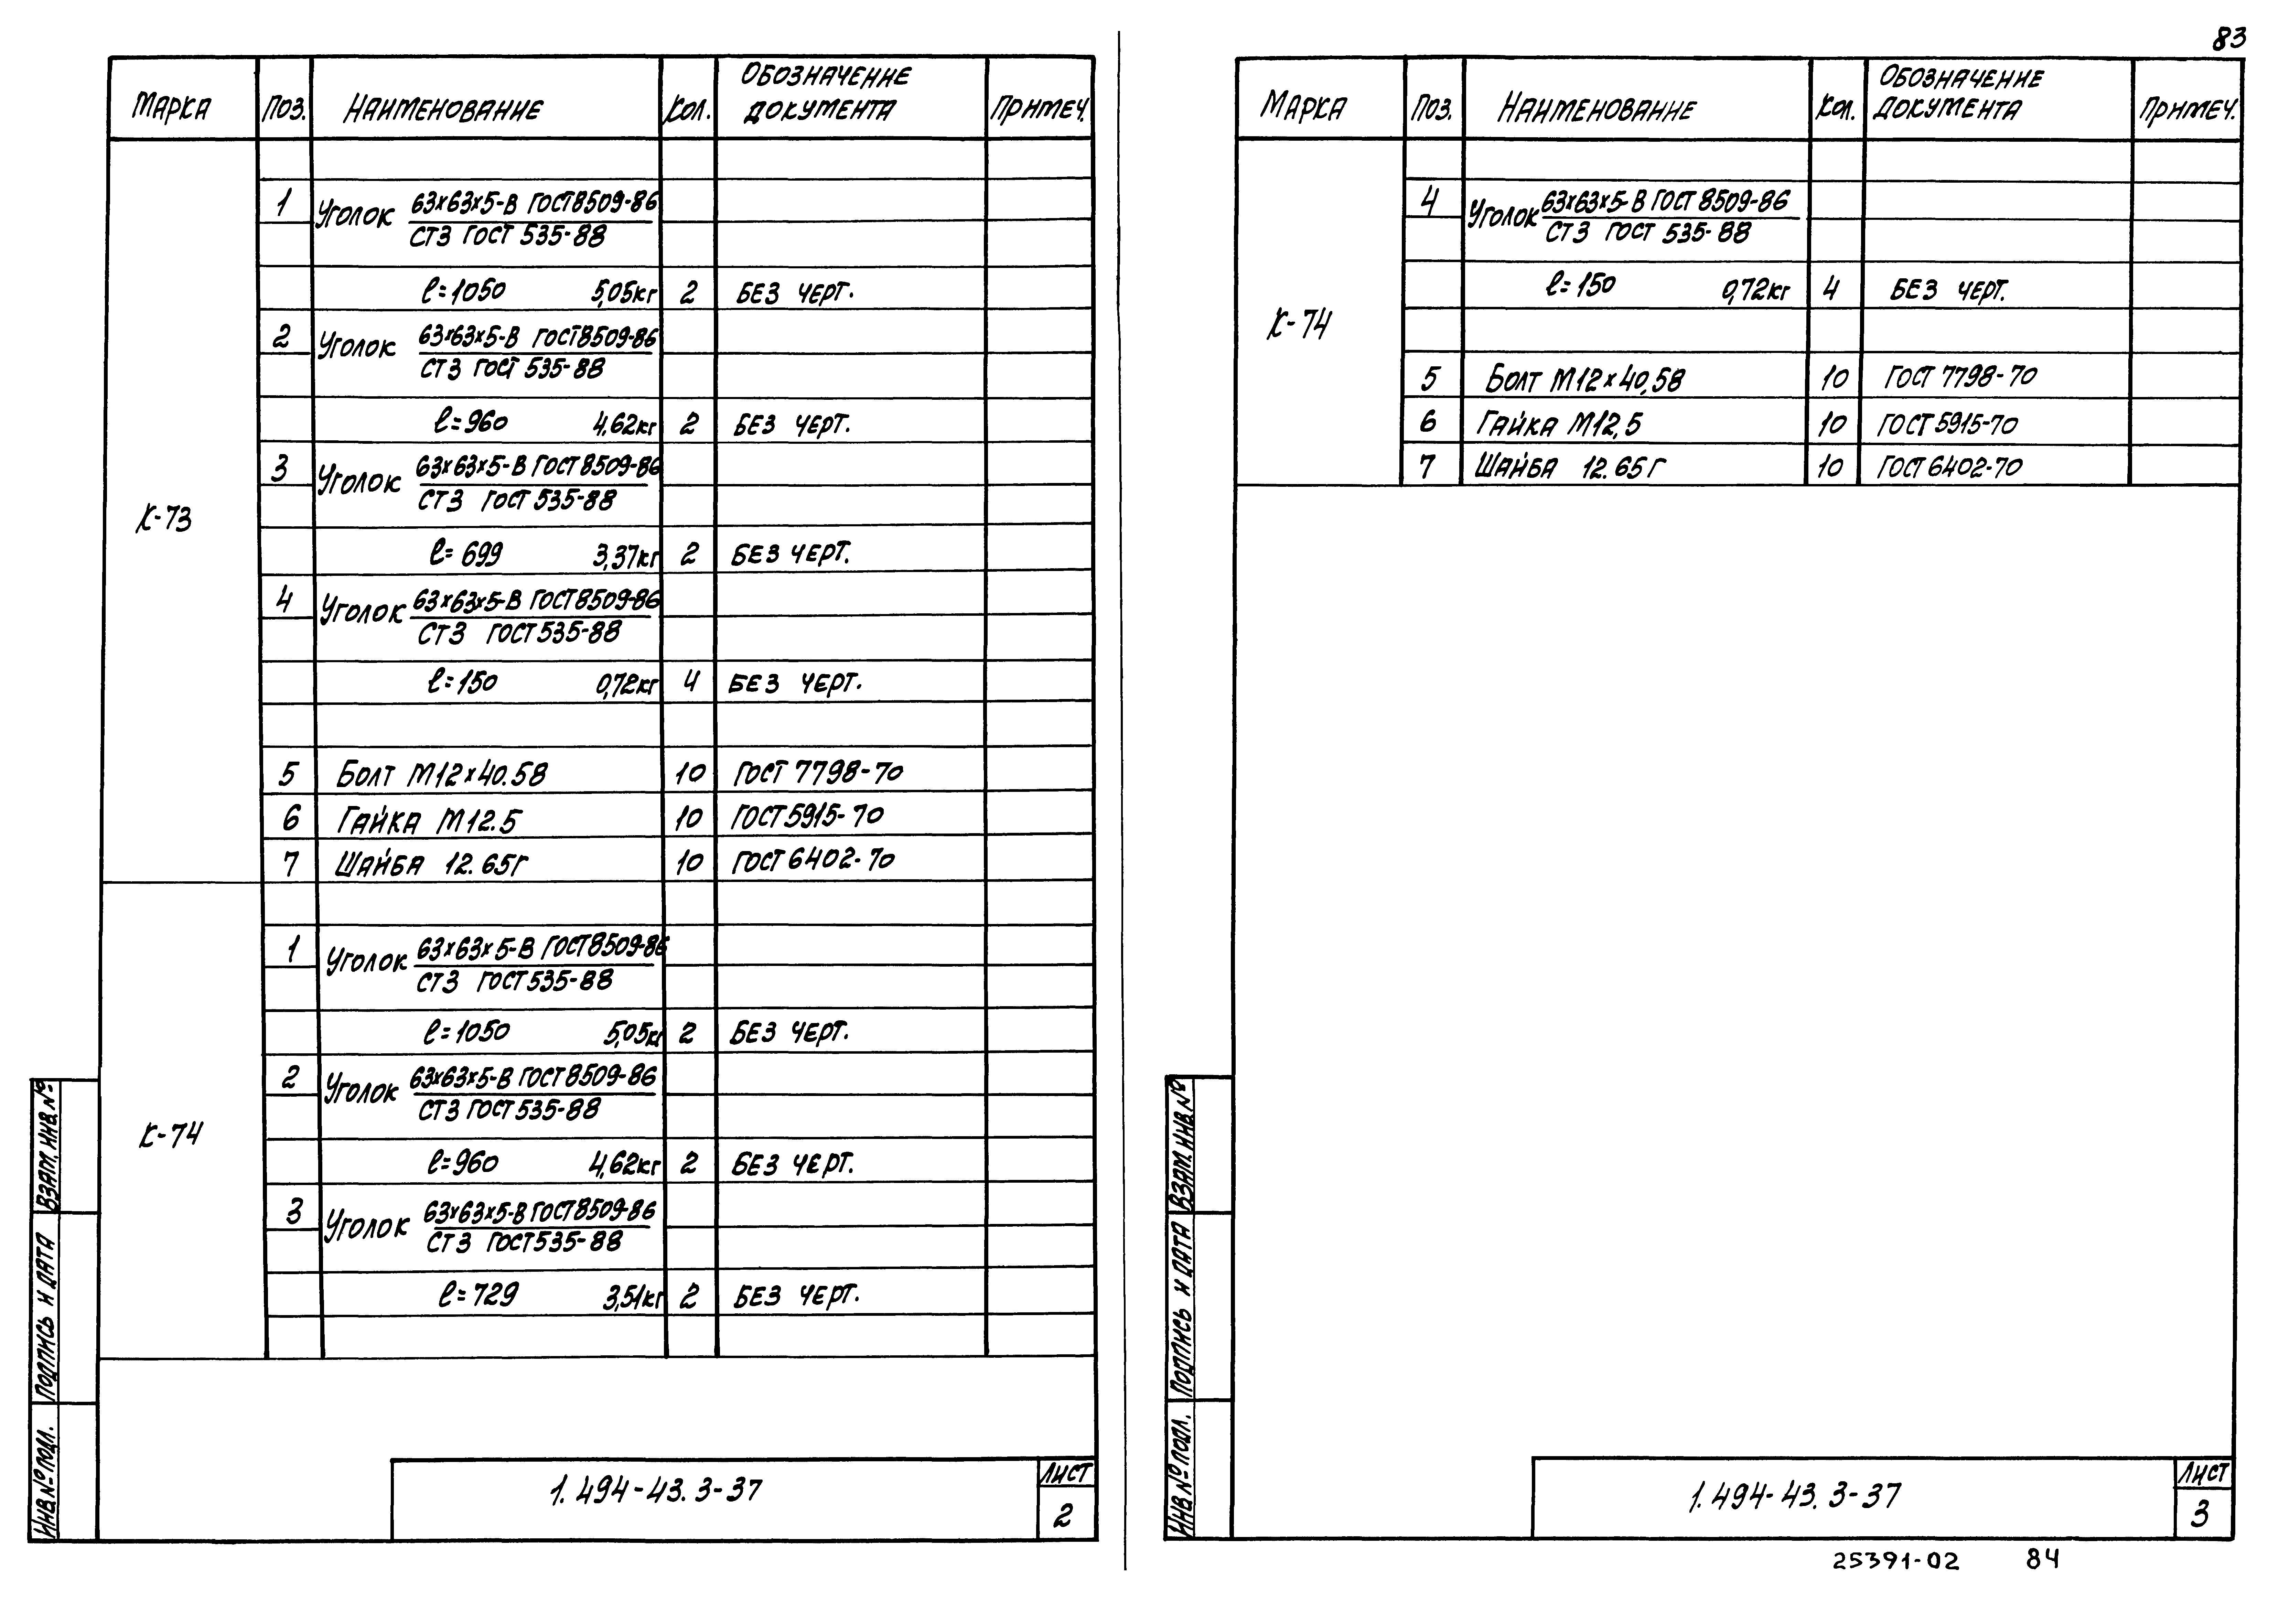 83
МАРКА ПОЗ. НАИМЕНОВАНИЕ КОЛ. ОБОЗНАЧЕНИЕ ДОКУМЕНТА ПРИМЕЧ.
К-73
1 УГОЛОК 63х63х5-В ГОСТ8509-86
СТ3 ГОСТ 535-88
ℓ=1050 5,05кг 2 БЕЗ ЧЕРТ.
2 УГОЛОК 63х63х5-В ГОСТ8509-86
СТ3 ГОСТ 535-88
ℓ=960 4,62кг 2 БЕЗ ЧЕРТ.
3 УГОЛОК 63х63х5-В ГОСТ8509-86
СТ3 ГОСТ 535-88
ℓ=699 3,37кг 2 БЕЗ ЧЕРТ.
4 УГОЛОК 63х63х5-В ГОСТ8509-86
СТ3 ГОСТ535-88
ℓ=150 0,72кг 4 БЕЗ ЧЕРТ.
5 БОЛТ М12х40.58 10 ГОСТ 7798-70
6 ГАЙКА М12.5 10 ГОСТ5915-70
7 ШАЙБА 12.65Г 10 ГОСТ 6402-70
К-74
1 УГОЛОК 63х63х5-В ГОСТ8509-86
СТ3 ГОСТ535-88
ℓ=1050 5,05кг 2 БЕЗ ЧЕРТ.
2 УГОЛОК 63х63х5-В ГОСТ8509-86
СТ3 ГОСТ535-88
ℓ=960 4,62кг 2 БЕЗ ЧЕРТ.
3 УГОЛОК 63х63х5-В ГОСТ8509-86
СТ3 ГОСТ535-88
ℓ=729 3,51кг 2 БЕЗ ЧЕРТ.
ВЗАМ. ИНВ.№
ПОДПИСЬ И ДАТА
ИНВ.№ ПОДЛ.
1.494-43.3-37
ЛИСТ
2
МАРКА ПОЗ. НАИМЕНОВАНИЕ КОЛ. ОБОЗНАЧЕНИЕ ДОКУМЕНТА ПРИМЕЧ.
К-74
4 УГОЛОК 63х63х5-В ГОСТ 8509-86
СТ3 ГОСТ 535-88
ℓ=150 0,72кг 4 БЕЗ ЧЕРТ.
5 БОЛТ М12х40,58 10 ГОСТ 7798-70
6 ГАЙКА М12,5 10 ГОСТ5915-70
7 ШАЙБА 12.65Г 10 ГОСТ6402-70
ВЗАМ. ИНВ.№
ПОДПИСЬ И ДАТА
ИНВ.№ ПОДЛ.
1.494-43.3-37
ЛИСТ
3
25391-02 84